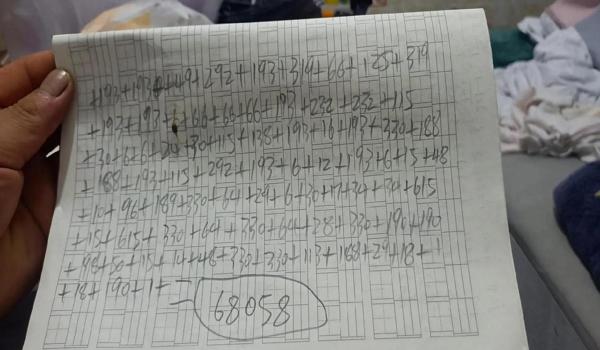 +193+193+49+292+193+319+66+125+319
+193+193+6+66+66+66+193+232+232+115
+30+6+6+20+30+115+138+193+16+193+330+188
+188+193+115+292+193+6+12+193+6+15+48
+10+96+189+330+64+29+6+30+17+34+30+615
+15+615+330+64+330+64+28+330+190+190
+48+50+15+14+48+330+330+113+188+29+18+1
+18+190+1+=
68058